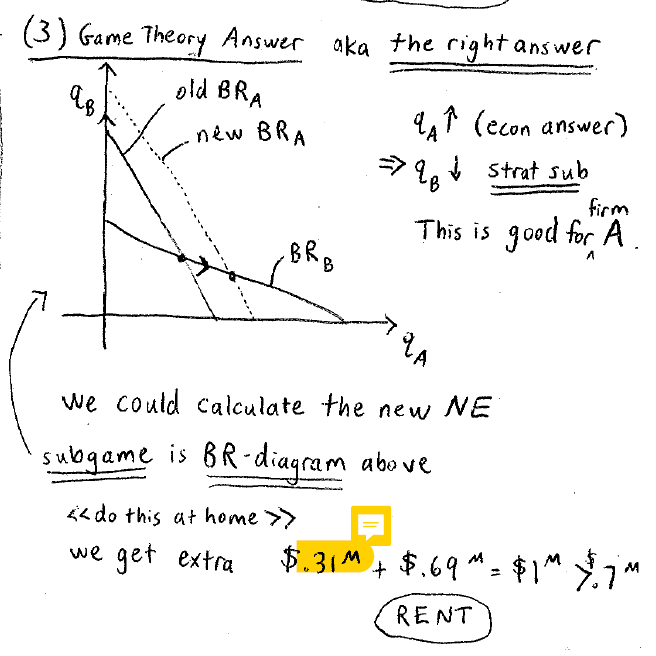 (3) Game Theory Answer aka the right answer
q_B
old BR_A
new BR_A
BR_B
q_A
q_A ↑ (econ answer)
⇒ q_B ↓ strat sub
This is good for firm A.
we could calculate the new NE
subgame is BR-diagram above
<<do this at home>>
we get extra $.31M + $.69M = $1M > $.7M
RENT